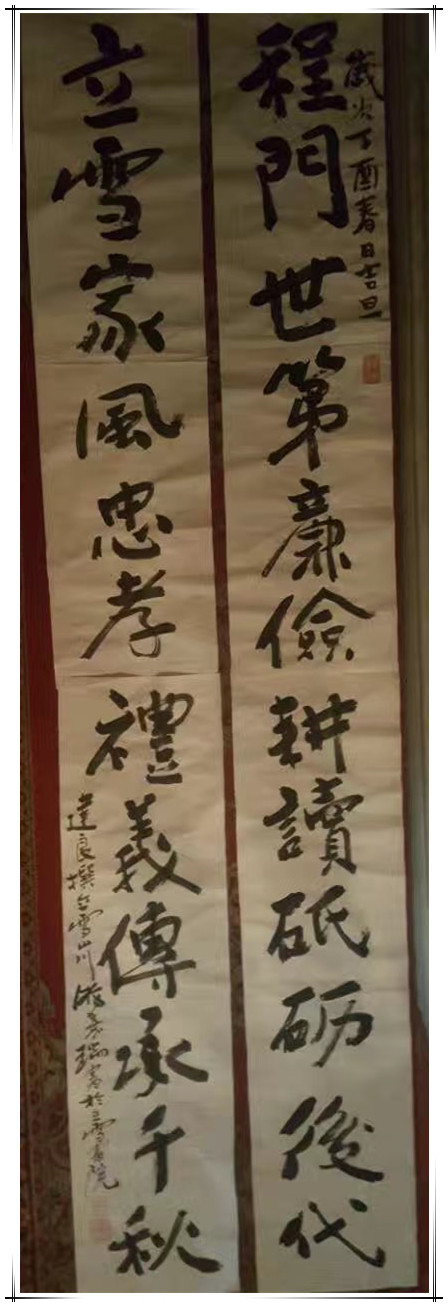 歲次丁酉春日吉旦
程門世第廉儉耕讀砥砺後代
立雪家風忠孝禮義傳承千秋
達良撰立雪山川 書於立雪書院